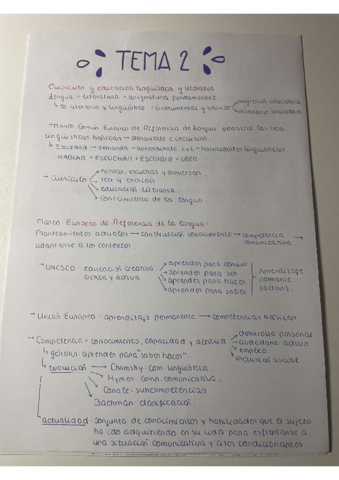 TEMA 2
Currículo y educación lingüística y literaria
Lengua + Literatura = asignatura fundamental
↳ Lo literario y lingüístico → instrumental y básico
"Marco Común Europeo de Referencia de Lengua
lingüísticas básicas = desarrollo e inclusión.
↳ Sociedad → demanda → aprendizaje L+L = habilidades lingüísticas
HABLAR + ESCUCHAR + ESCRIBIR + LEER
→ Currículo
hablar, escuchar y conversar
leer y escribir
educación literaria
conocimiento de la lengua
Marco Europeo de Referencia de la lengua:
Planteamientos actuales → construcción conocimiento → competencia comunicativa
adaptarse a los contextos.
→ UNESCO educación creativa, activa
aprender para conocer
aprender para ser
aprender para hacer
aprender para saber
Aprendizaje
permanente
→ Unión Europea: aprendizaje permanente → competencias básicas
→ Competencia = conocimiento, capacidad y actitud
desarrollo personal
ciudadano activo
empleo
inclusión social
aprender para saber hacer".
↳ evolución
Chomsky: com. lingüística
Hymes: comp. comunicativa.
Canale: subcompetencias
Bachman: clasificación.
actualidad: conjunto de conocimientos y habilidades que el sujeto
ha ido adquiriendo en su vida para enfrentarse a
una situación comunicativa y a los condicionantes.